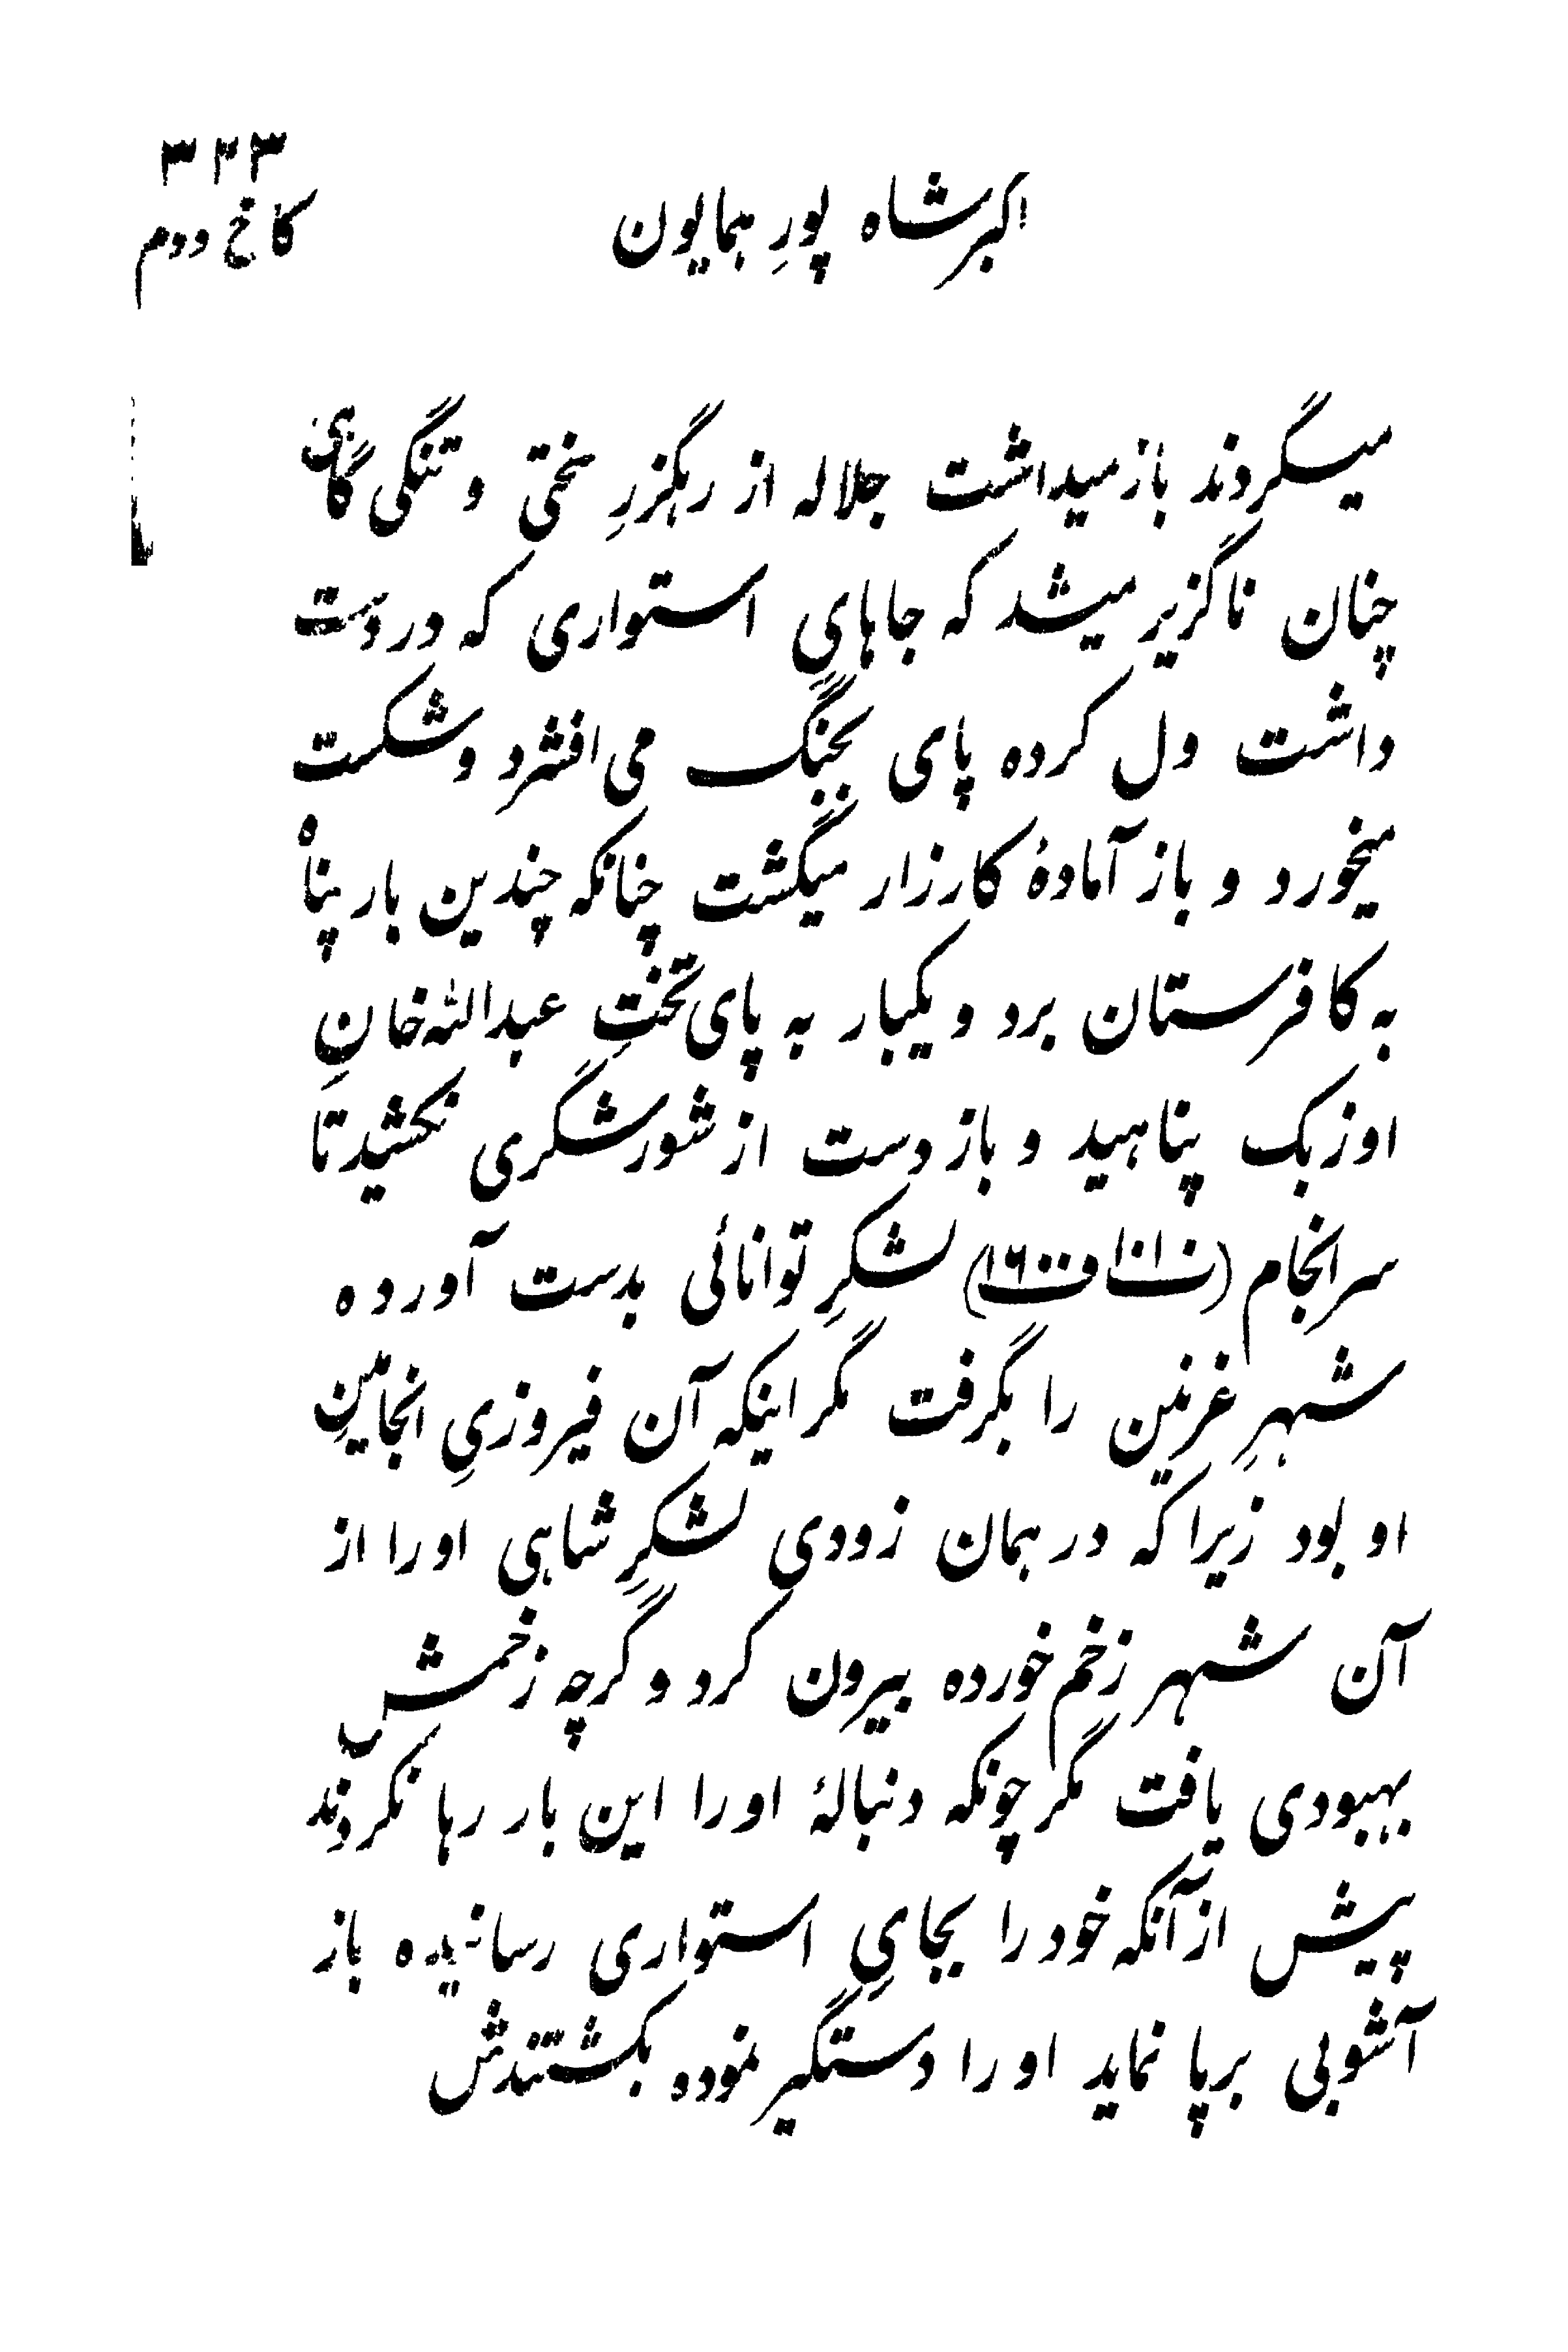 ۳۲۳
اکبرشاه پورِ همایون
کاخ دوم
میگردند بازمیداشت جلاله از رهگزرِ سختی و تنگی گاهی
چنان ناگزیر میشد که جاهایِ استواری که در دست
داشت ول کرده پای بجنگ می‌افشرد و شکست
میخورد و باز آمادهٔ کارزار میگشت چنانکه چندین بار پناه
به کافرستان برد و یکبار به پای تختِ عبدالله خانِ
اوزبک پناهید و باز دست از شورشگری نکشید تا
سرانجام (ن ۱۰۱۰ ف ۱۶۰۰) لشکرِ توانائی بدست آورده
شهرِ غزنین را بگرفت مگر اینکه آن فیروزیِ انجامینِ
او بود زیرا که در همان زودی لشکرِ شاهی او را از
آن شهر زخم خورده بیرون کرد و گرچه زخمش
بهبودی یافت مگر چونکه دنبالهٔ او را این بار رها نکردند
پیش از آنکه خود را بجایِ استواری رسانیده باز
آشوبی برپا نماید او را دستگیر نموده بکشتندش